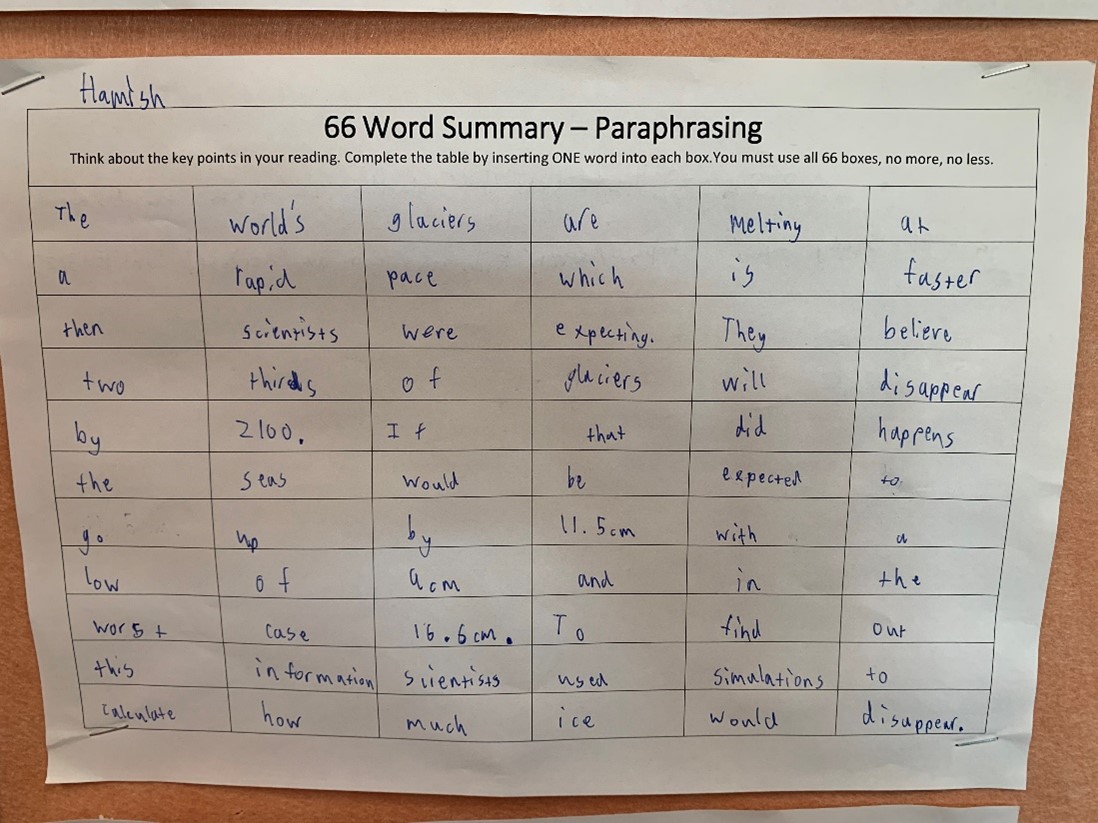 Hamish
66 Word Summary – Paraphrasing
Think about the key points in your reading. Complete the table by inserting ONE word into each box.You must use all 66 boxes, no more, no less.
The world's glaciers are melting at
a rapid pace which is faster
then scientists were expecting. They believe
two thirds of glaciers will disappear
by 2100. If that did happens
the seas would be expected to
go up by 11.5cm with a
low of 9cm and in the
worst case 16.6cm. To find out
this information scientists used simulations to
calculate how much ice would disappear.